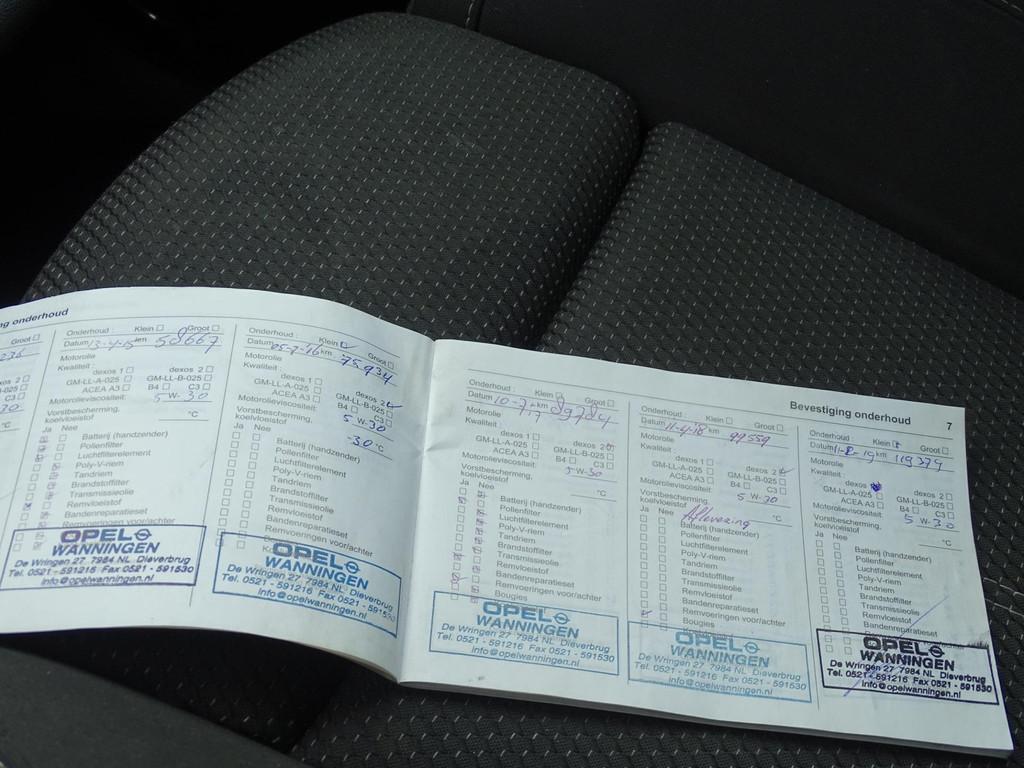 ng onderhoud
Groot
236
xos 2
B-025
C3
30
Onderhoud : Klein Groot
Datum 13-4-15 km 58667
Motorolie
Kwaliteit :
dexos 1 dexos 2
GM-LL-A-025 GM-LL-B-025
ACEA A3 B4 C3
Motorolieviscositeit: 5 W- 30
Vorstbescherming, koelvloeistof °C
Ja Nee
Batterij (handzender)
Pollenfilter
Luchtfilterelement
Poly-V-riem
Tandriem
Brandstoffilter
Transmissieolie
Remvloeistof
Bandenreparatieset
Remvoeringen voor/achter
OPEL
WANNINGEN
De Wringen 27 7984 NL Dieverbrug
Tel. 0521 - 591216 Fax 0521 - 591530
info@opelwanningen.nl
Onderhoud : Klein Groot
Datum 05-7-16 km 75934
Motorolie
Kwaliteit :
dexos 1 dexos 2
GM-LL-A-025 GM-LL-B-025
ACEA A3 B4 C3
Motorolieviscositeit: 5 W- 30
Vorstbescherming,
koelvloeistof -30 °C
Ja Nee
Batterij (handzender)
Pollenfilter
Luchtfilterelement
Poly-V-riem
Tandriem
Brandstoffilter
Transmissieolie
Remvloeistof
Bandenreparatieset
Remvoeringen voor/achter
OPEL
WANNINGEN
De Wringen 27 7984 NL Dieverbrug
Tel. 0521 - 591216 Fax 0521 - 591530
info@opelwanningen.nl
Onderhoud : Klein Groot
Datum 10-7-17 km 89784
Motorolie
Kwaliteit :
dexos 1 dexos 2
GM-LL-A-025 GM-LL-B-025
ACEA A3 B4 C3
Motorolieviscositeit: 5 W- 30
Vorstbescherming,
koelvloeistof °C
Ja Nee
Batterij (handzender)
Pollenfilter
Luchtfilterelement
Poly-V-riem
Tandriem
Brandstoffilter
Transmissieolie
Remvloeistof
Bandenreparatieset
Remvoeringen voor/achter
Bougies
OPEL
WANNINGEN
De Wringen 27 7984 NL Dieverbrug
Tel. 0521 - 591216 Fax 0521 - 591530
info@opelwanningen.nl
Bevestiging onderhoud 7
Onderhoud : Klein Groot
Datum 11-4-18 km 99559
Motorolie
Kwaliteit :
dexos 1 dexos 2
GM-LL-A-025 GM-LL-B-025
ACEA A3 B4 C3
Motorolieviscositeit: 5 W- 30
Vorstbescherming,
koelvloeistof °C
Ja Nee Aflevering
Batterij (handzender)
Pollenfilter
Luchtfilterelement
Poly-V-riem
Tandriem
Brandstoffilter
Transmissieolie
Remvloeistof
Bandenreparatieset
Remvoeringen voor/achter
Bougies
OPEL
WANNINGEN
De Wringen 27 7984 NL Dieverbrug
Tel. 0521 - 591216 Fax 0521 - 591530
info@opelwanningen.nl
Onderhoud : Klein Groot
Datum 11-8-19 km 119379
Motorolie
Kwaliteit :
dexos 2
GM-LL-A-025 GM-LL-B-025
ACEA A3 B4 C3
Motorolieviscositeit: 5 W- 30
Vorstbescherming,
koelvloeistof °C
Ja Nee
Batterij (handzender)
Pollenfilter
Luchtfilterelement
Poly-V-riem
Tandriem
Brandstoffilter
Transmissieolie
Remvloeistof
Bandenreparatieset
OPEL
WANNINGEN
De Wringen 27 7984 NL Dieverbrug
Tel. 0521 - 591216 Fax 0521 - 591530
info@opelwanningen.nl